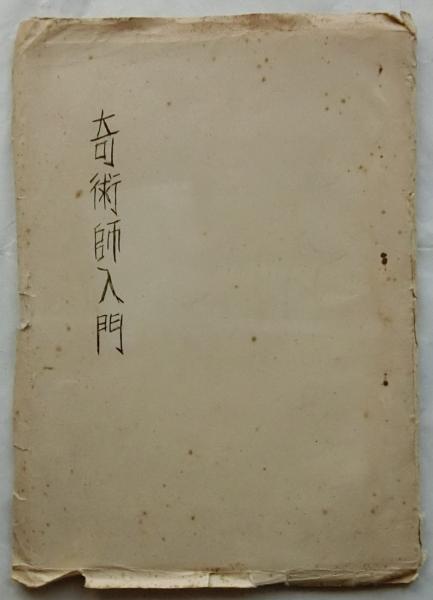 奇術師入門